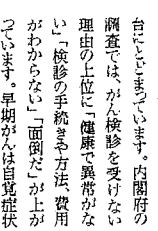 台にとどまっています。内閣府の
調査では、がん検診を受けない
理由の上位に「健康で異常がな
い」「検診の手続きや方法、費用
がわからない」「面倒だ」が上が
っています。早期がんは自覚症状